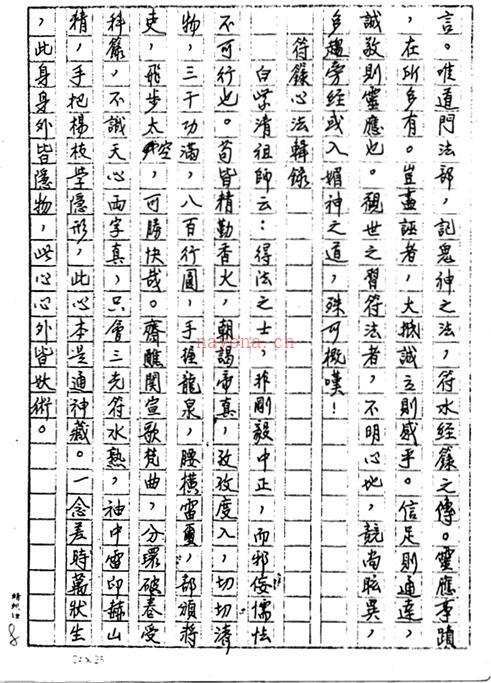 言。唯道門法部，記鬼神之法，符水經籙之傳。靈應事蹟
，在所多有。豈盡誣者，大抵誠立則感乎。信足則通達，
誠敬則靈應也。觀世之習符法者，不明心地，競尚眩異，
多趨旁經或入媚神之道，殊可概嘆！
符籙心法輯錄
白紫清祖師云：得法之士，非剛毅中正，而邪佞懦怯
不可行也。苟皆精勤香火，朝謁帝真，孜孜度入，切切濟
物，三千功滿，八百行圓，手握龍泉，腰橫雷璽，部領蔣
吏，飛步太空，可勝快哉。齋醮関宣歌梵曲，分環破券受
科籙，不識天心两字真，只會三光符水熟，袖中雷印赫山
精，手把楊枝学隱形，此心本是通神藏。一念差時萬狀生
，此身身外皆隱物，此心心外皆妖術。
8
24×25
nayona.cn